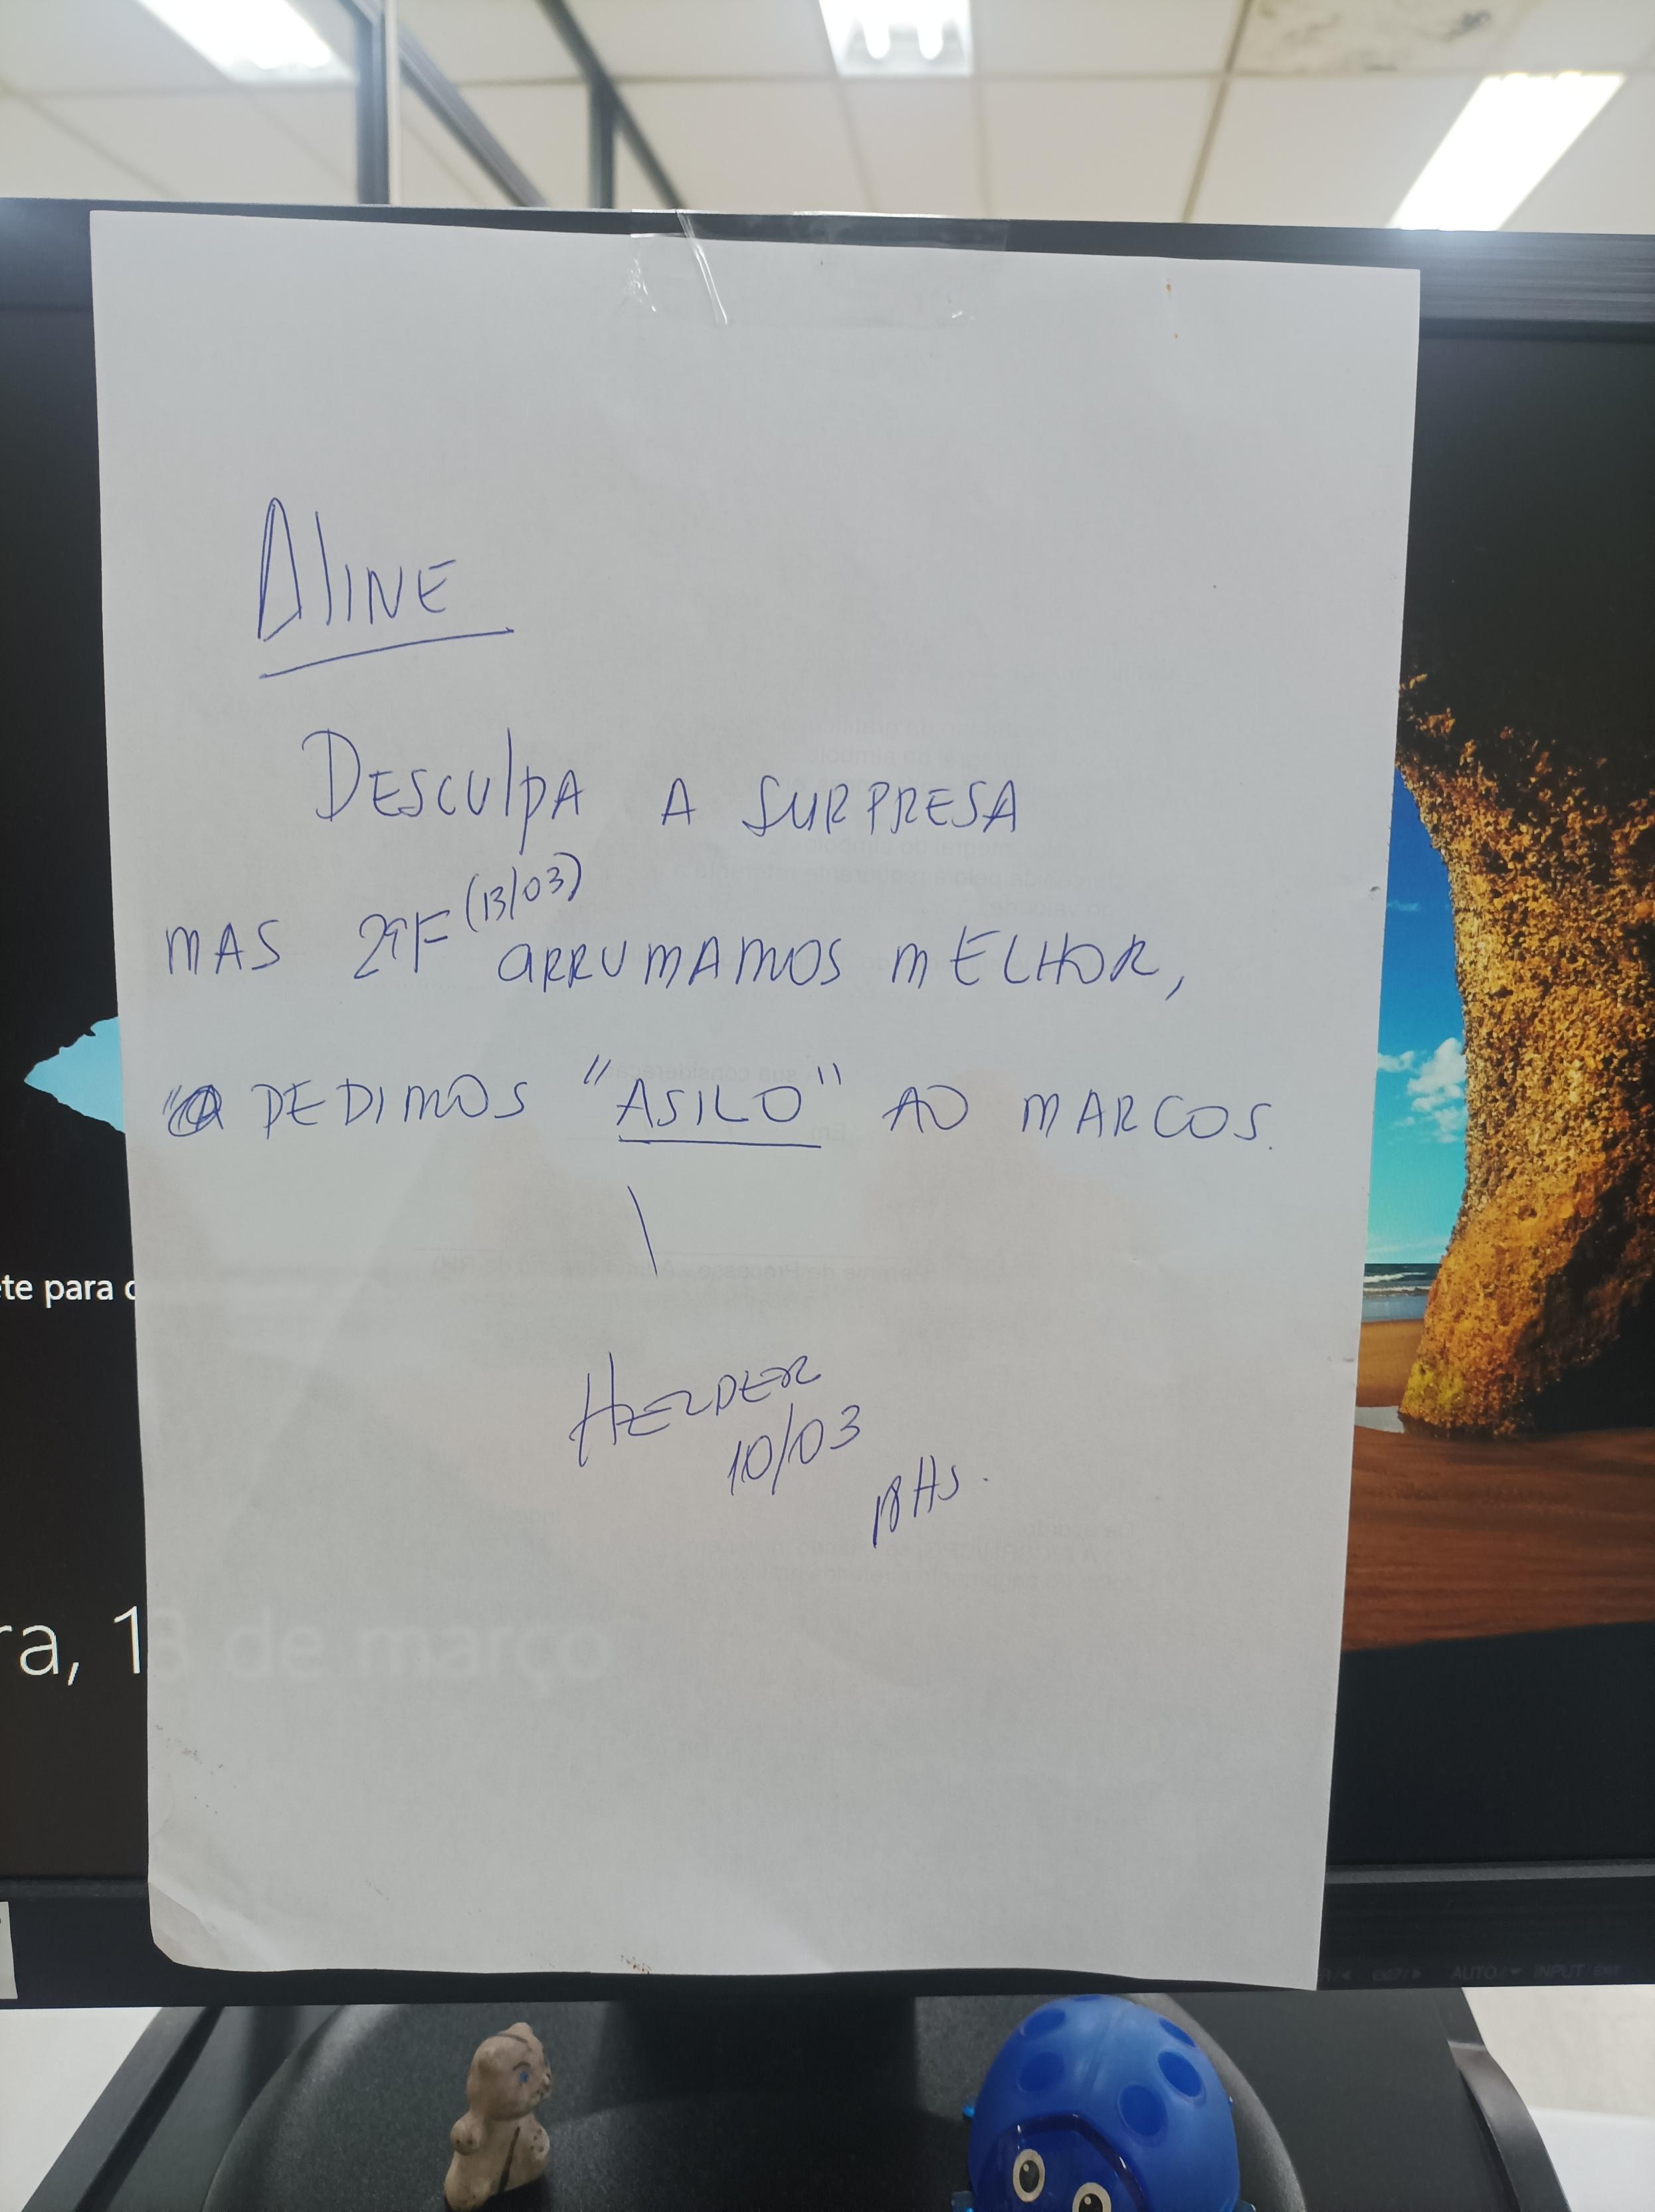 Aline
Desculpa a surpresa
mas 2ªF (13/03) arrumamos melhor,
pedimos "asilo" ao Marcos.
Helder
10/03
te para
ra, 13 de março
AUTO/ INPUT